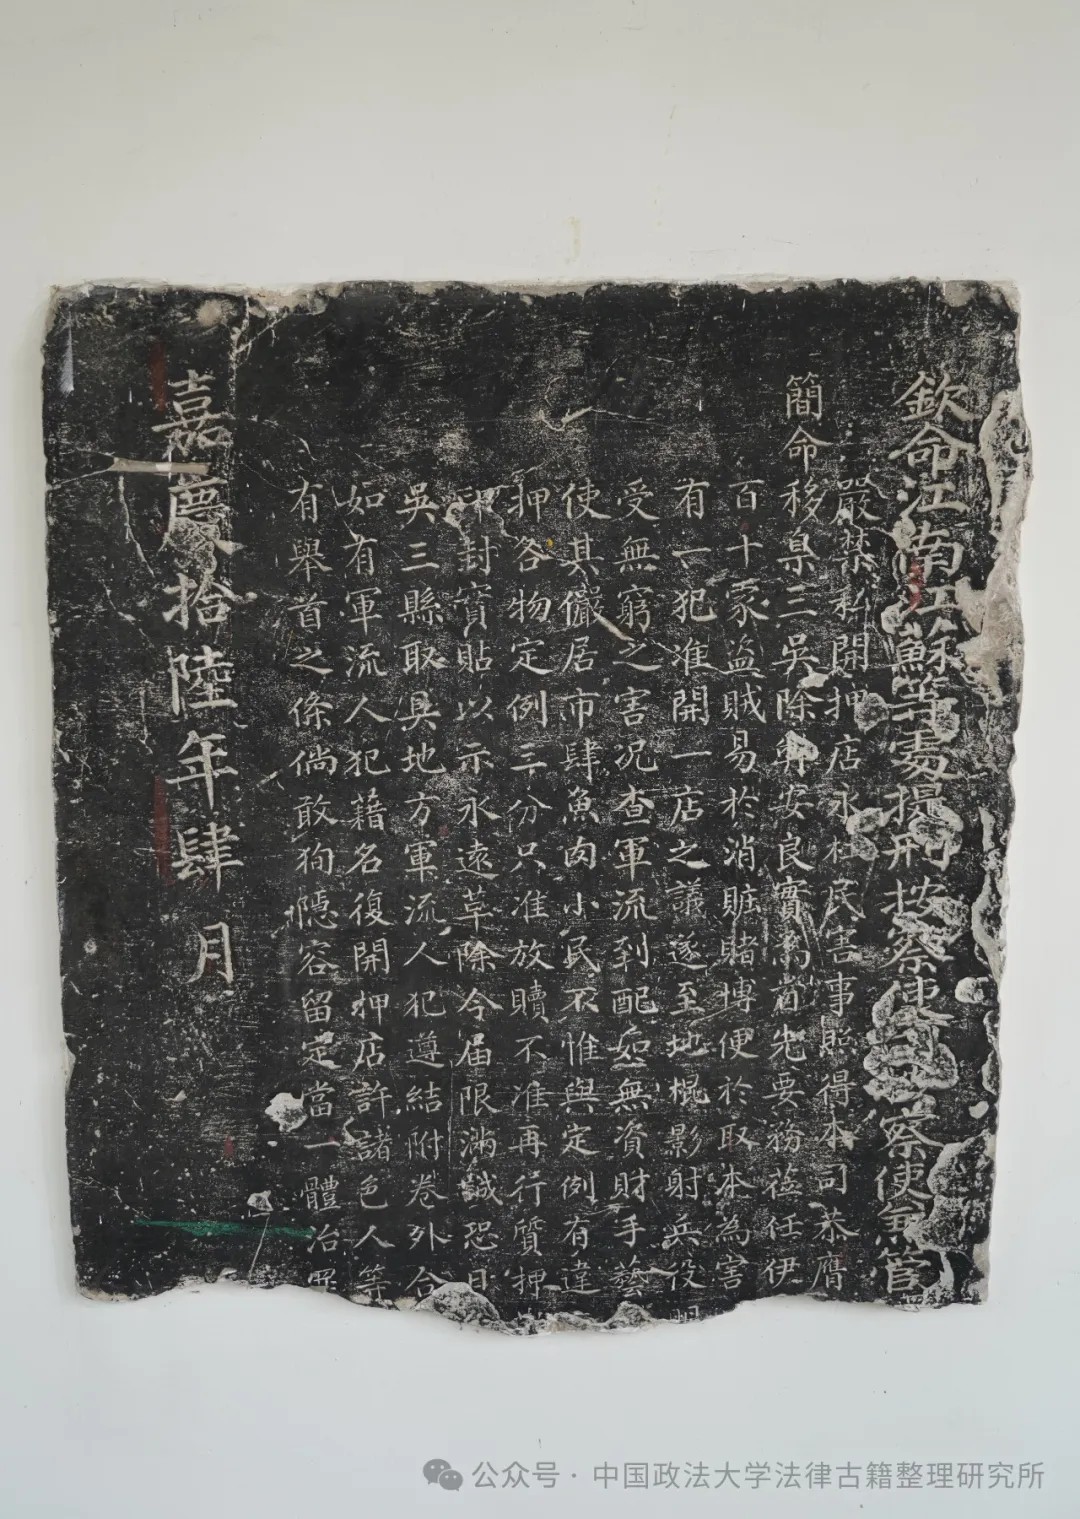 欽命江南江蘇等處提刑按察使司按察使兼管
嚴禁私開押店永杜民害事照得本司恭膺
簡命移臬三吳除暴安良實為首先要務蒞任伊
百十家盜賊易於消賍賭博便於取本為害
有一犯准開一店之議遂至地棍影射兵役
受無窮之害況查軍流到配如無資財手藝
使其儼居市肆魚肉小民不惟與定例有違
押各物定例三分只准放贖不准再行質押
印封實貼以示永遠革除今届限滿誠恐日
吳三縣取具地方軍流人犯遵結附卷外合
如有軍流人犯藉名復開押店許諸色人等
有舉首之條倘敢狥隱容留定當一體治罪
嘉慶拾陸年肆月
公众号·中国政法大学法律古籍整理研究所